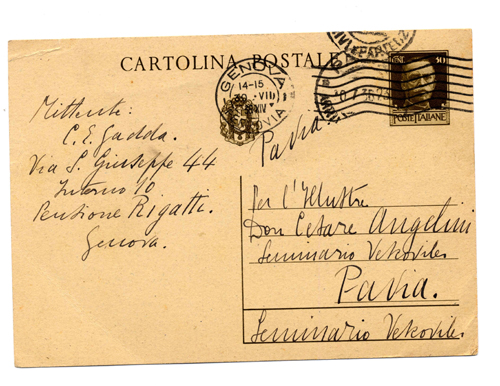 CARTOLINA POSTALE
GENOVA
14-15
VII
XIV
CENT. 30
POSTE ITALIANE
Mittente:
C. E. Gadda.
Via S. Giuseppe 44
Interno 10
Pensione Rigatti.
Genova.
Pavia
Per l'Illustre
Don Cesare Angelini
Seminario Vescovile
Pavia.
Seminario Vescovile